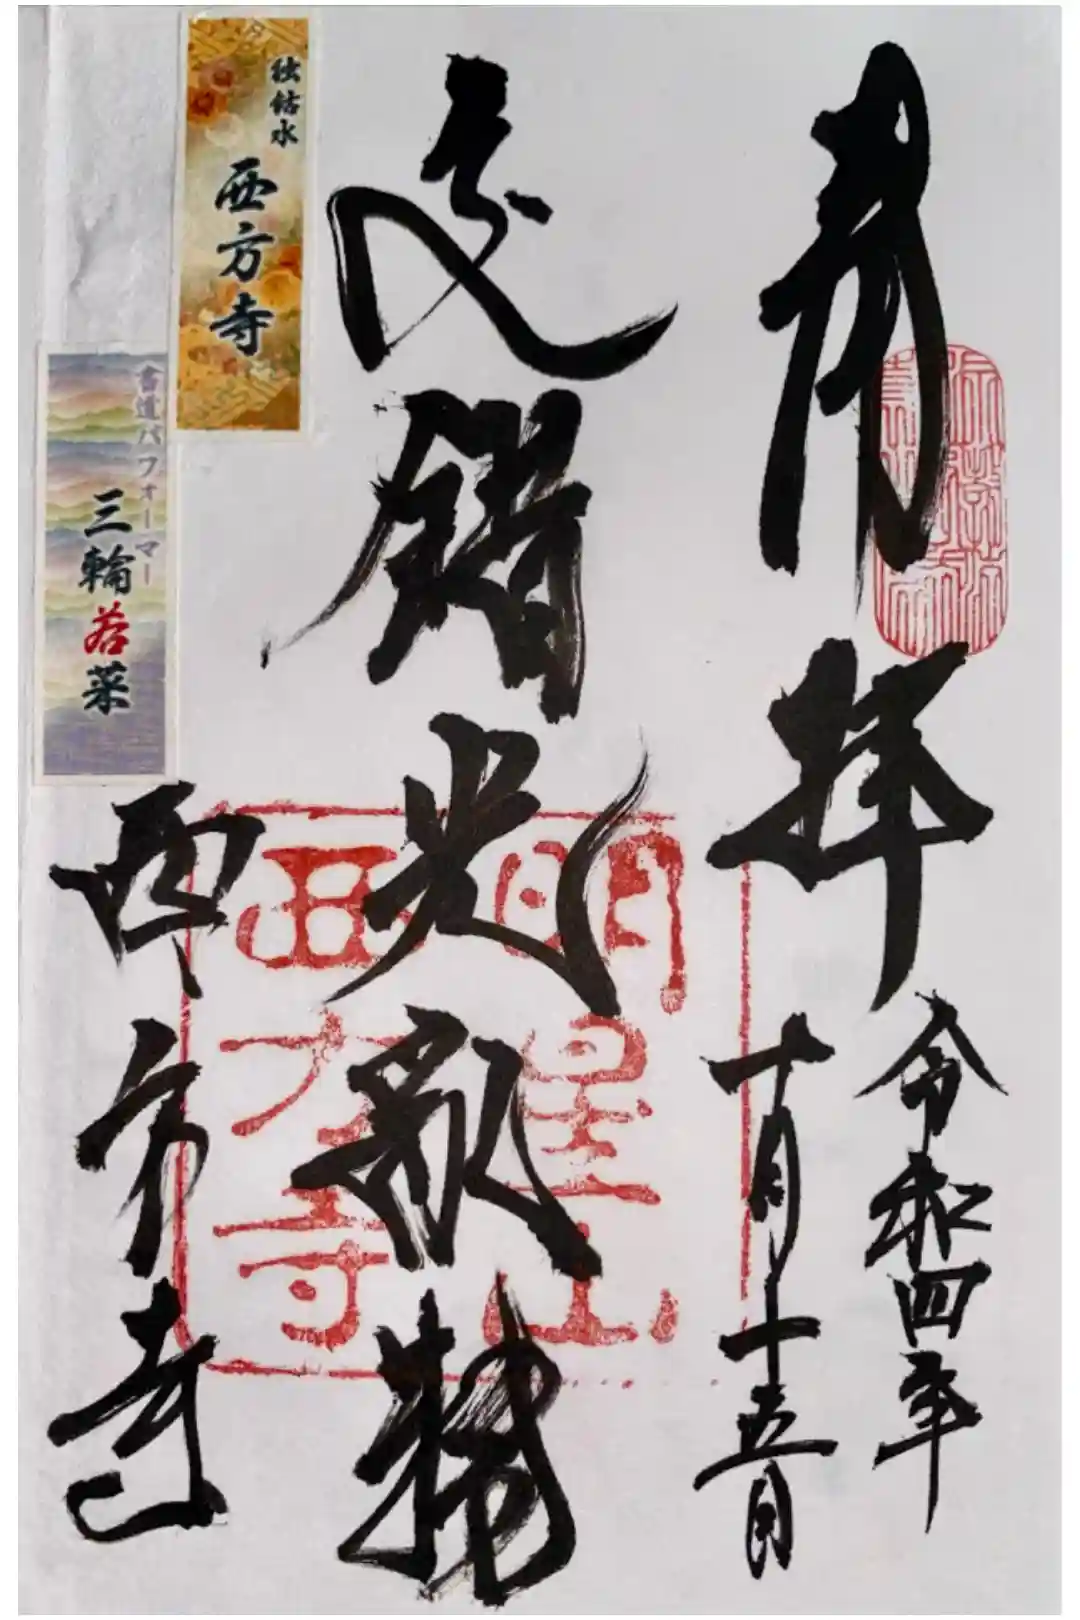 奉拝
令和四年
十月十五日
錯光
西方寺
明星山
西方寺
独鈷水
西方寺
書道パフォーマー
三輪若菜